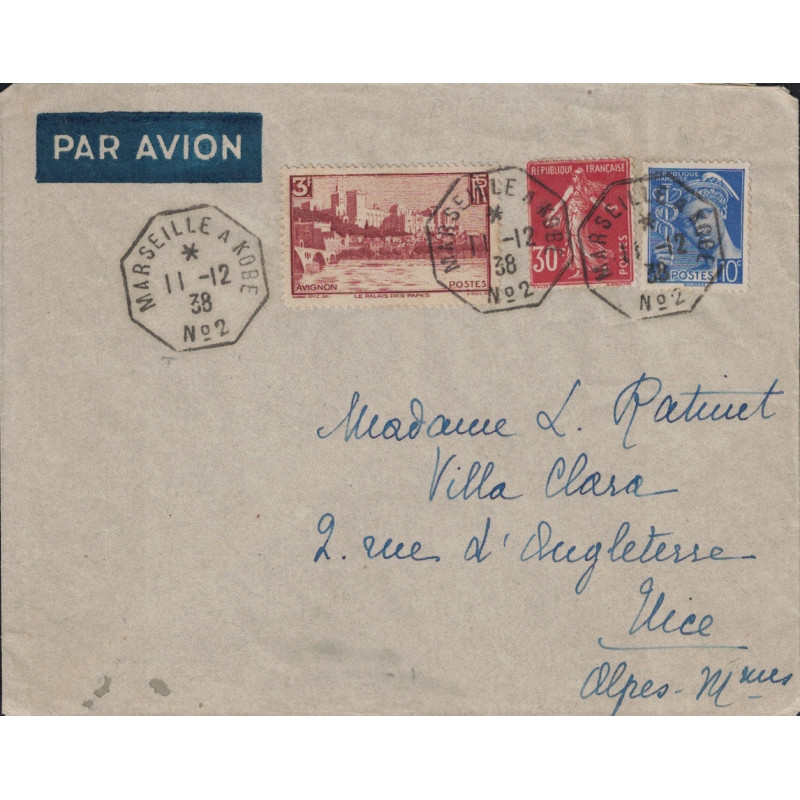 PAR AVION
MARSEILLE A KOBE
*
11 -12
38
No2
3F RF
AVIGNON POSTES
LE PALAIS DES PAPES
MARSEILLE A KOBE
*
11 -12
38
No2
REPUBLIQUE FRANÇAISE
30c
POSTES
MARSEILLE A KOBE
*
11 -12
38
No2
REPUBLIQUE
FRANÇAISE
POSTES 10c
Madame L. Ratinet
Villa Clara
2. rue d'Angleterre
Nice
Alpes-Mmes